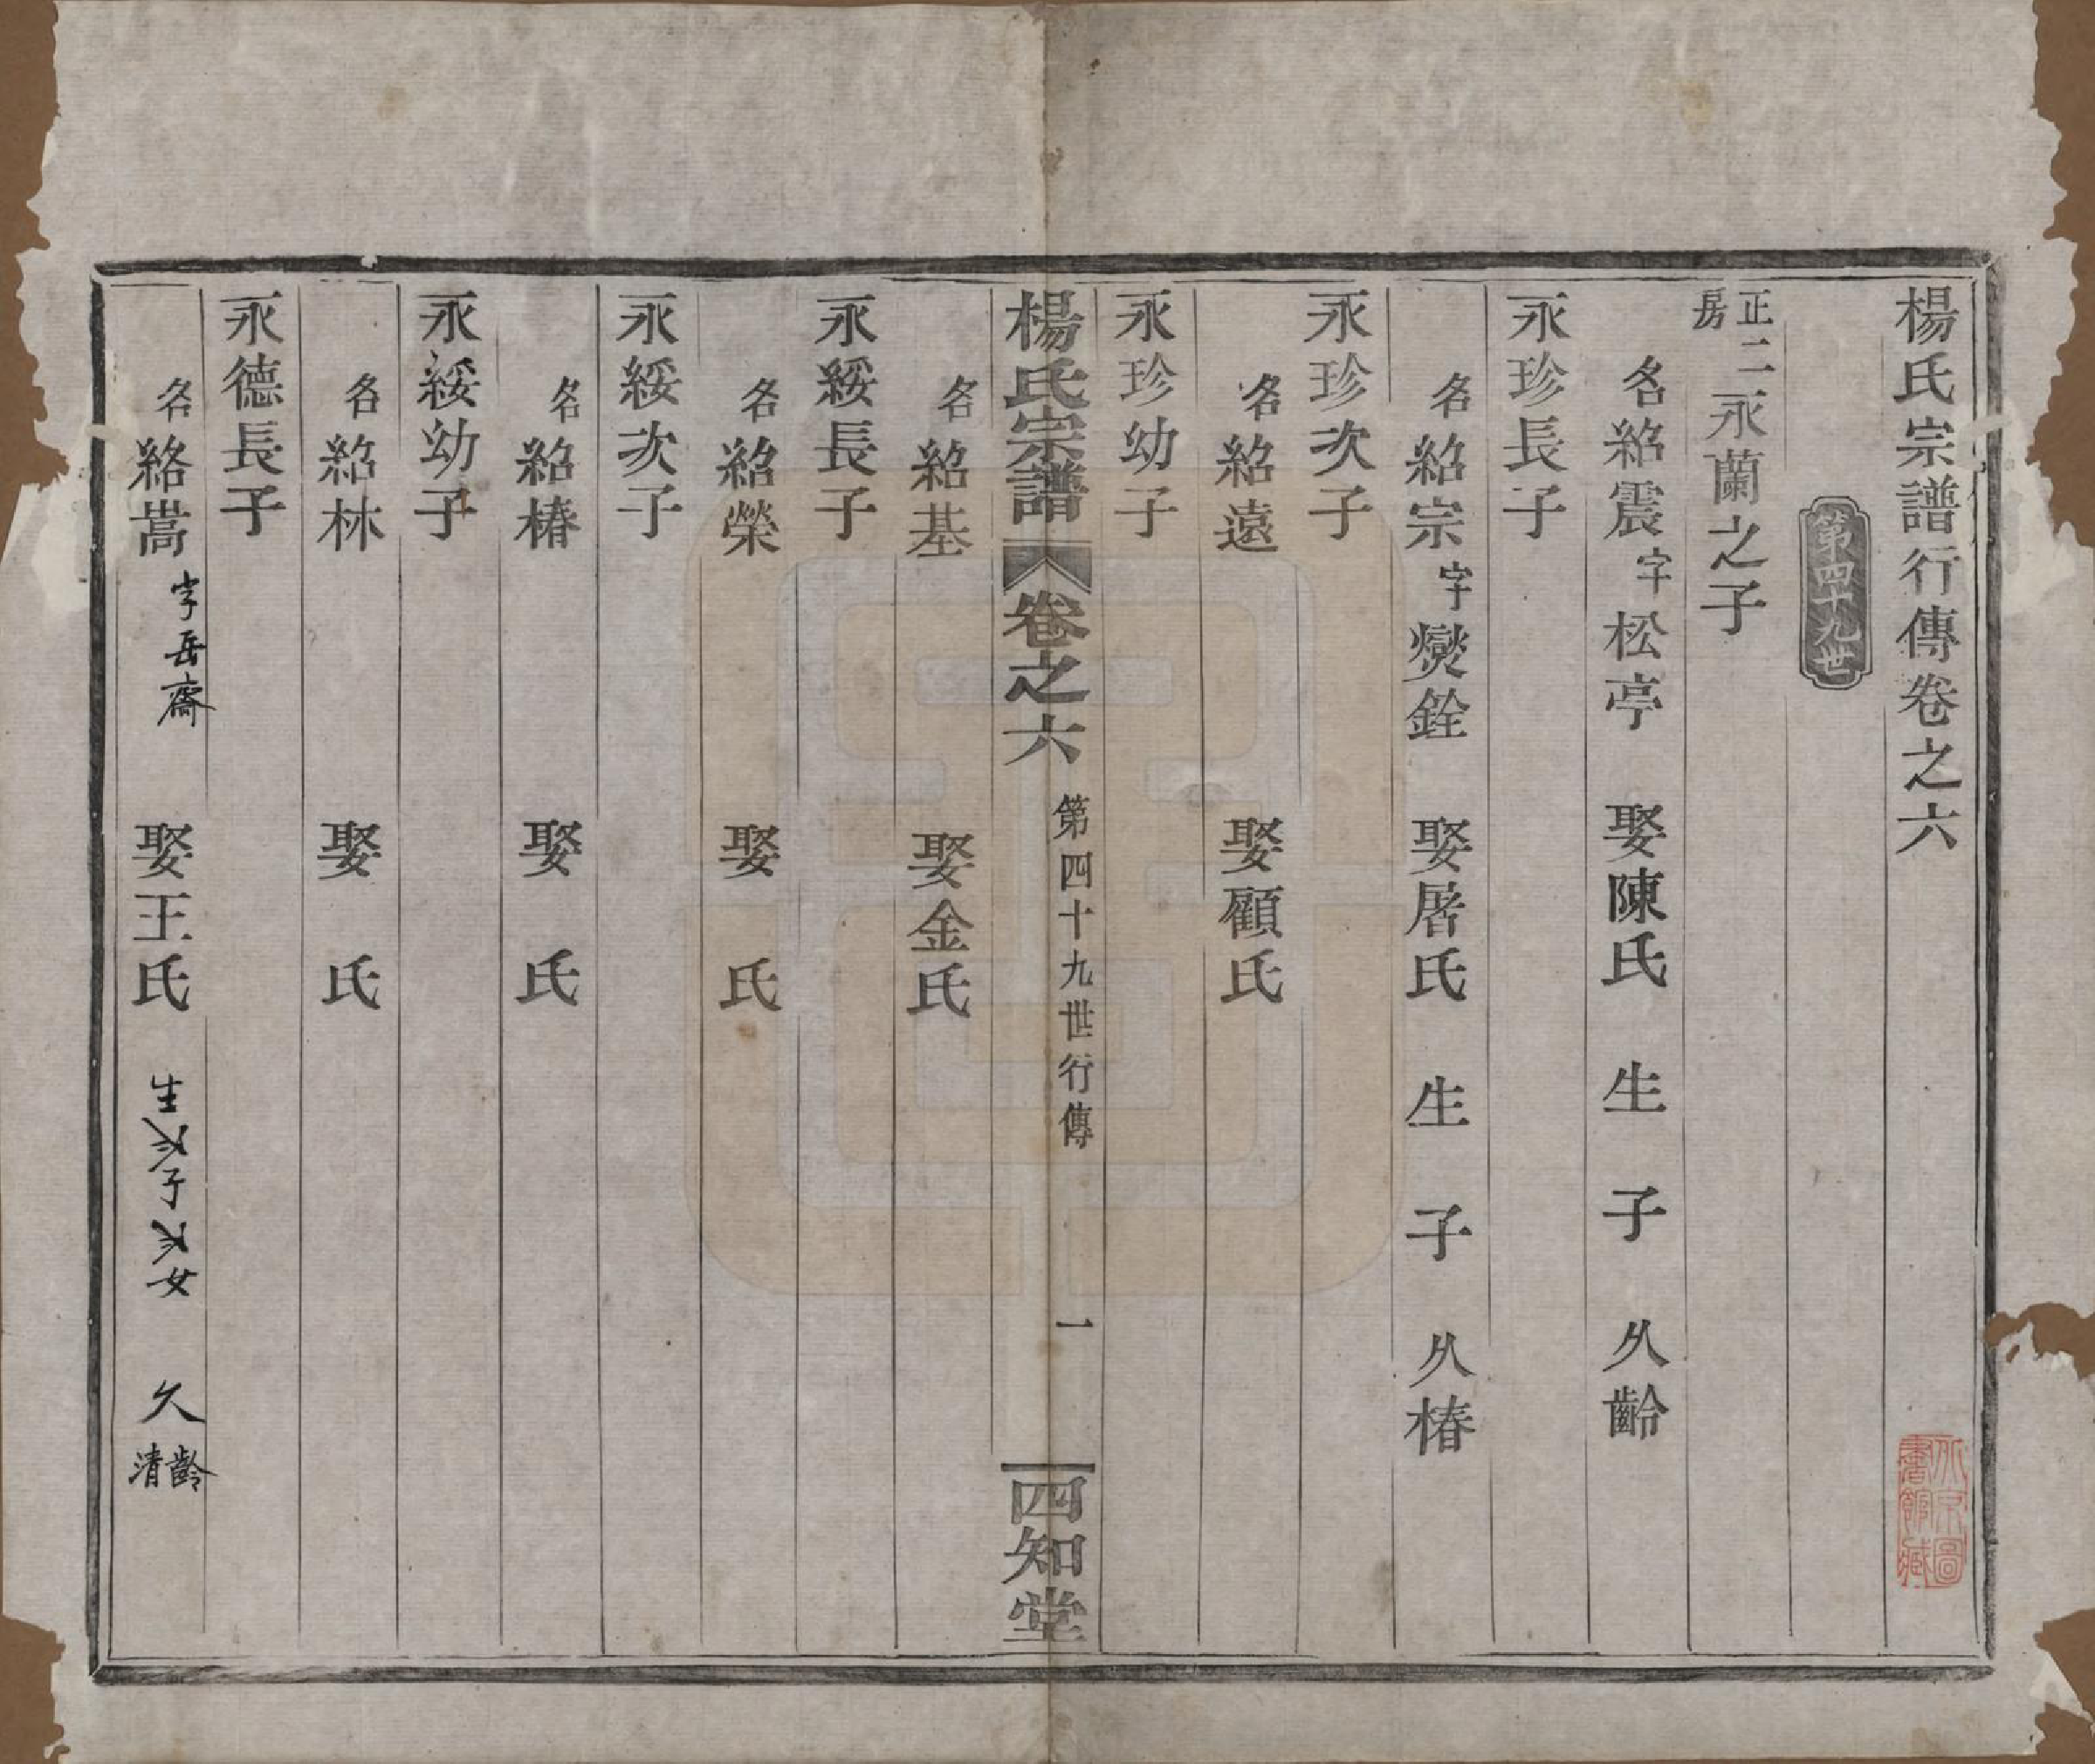 楊氏宗譜行傳卷之六
第四十九世
正二房永蘭之子
名紹震字松亭 娶陳氏 生子 久齡
永珍長子
名紹宗字爕銓 娶屠氏 生子 久椿
永珍次子
名紹遠 娶顧氏
永珍幼子
楊氏宗譜 卷之六 第四十九世行傳 一 四知堂
名紹基 娶金氏
永綏長子
名紹榮 娶 氏
永綏次子
名紹椿 娶 氏
永綏幼子
名紹林 娶 氏
永德長子
名紹嵩字岳齋 娶王氏 生 子 女 久齡清
北京圖書館藏